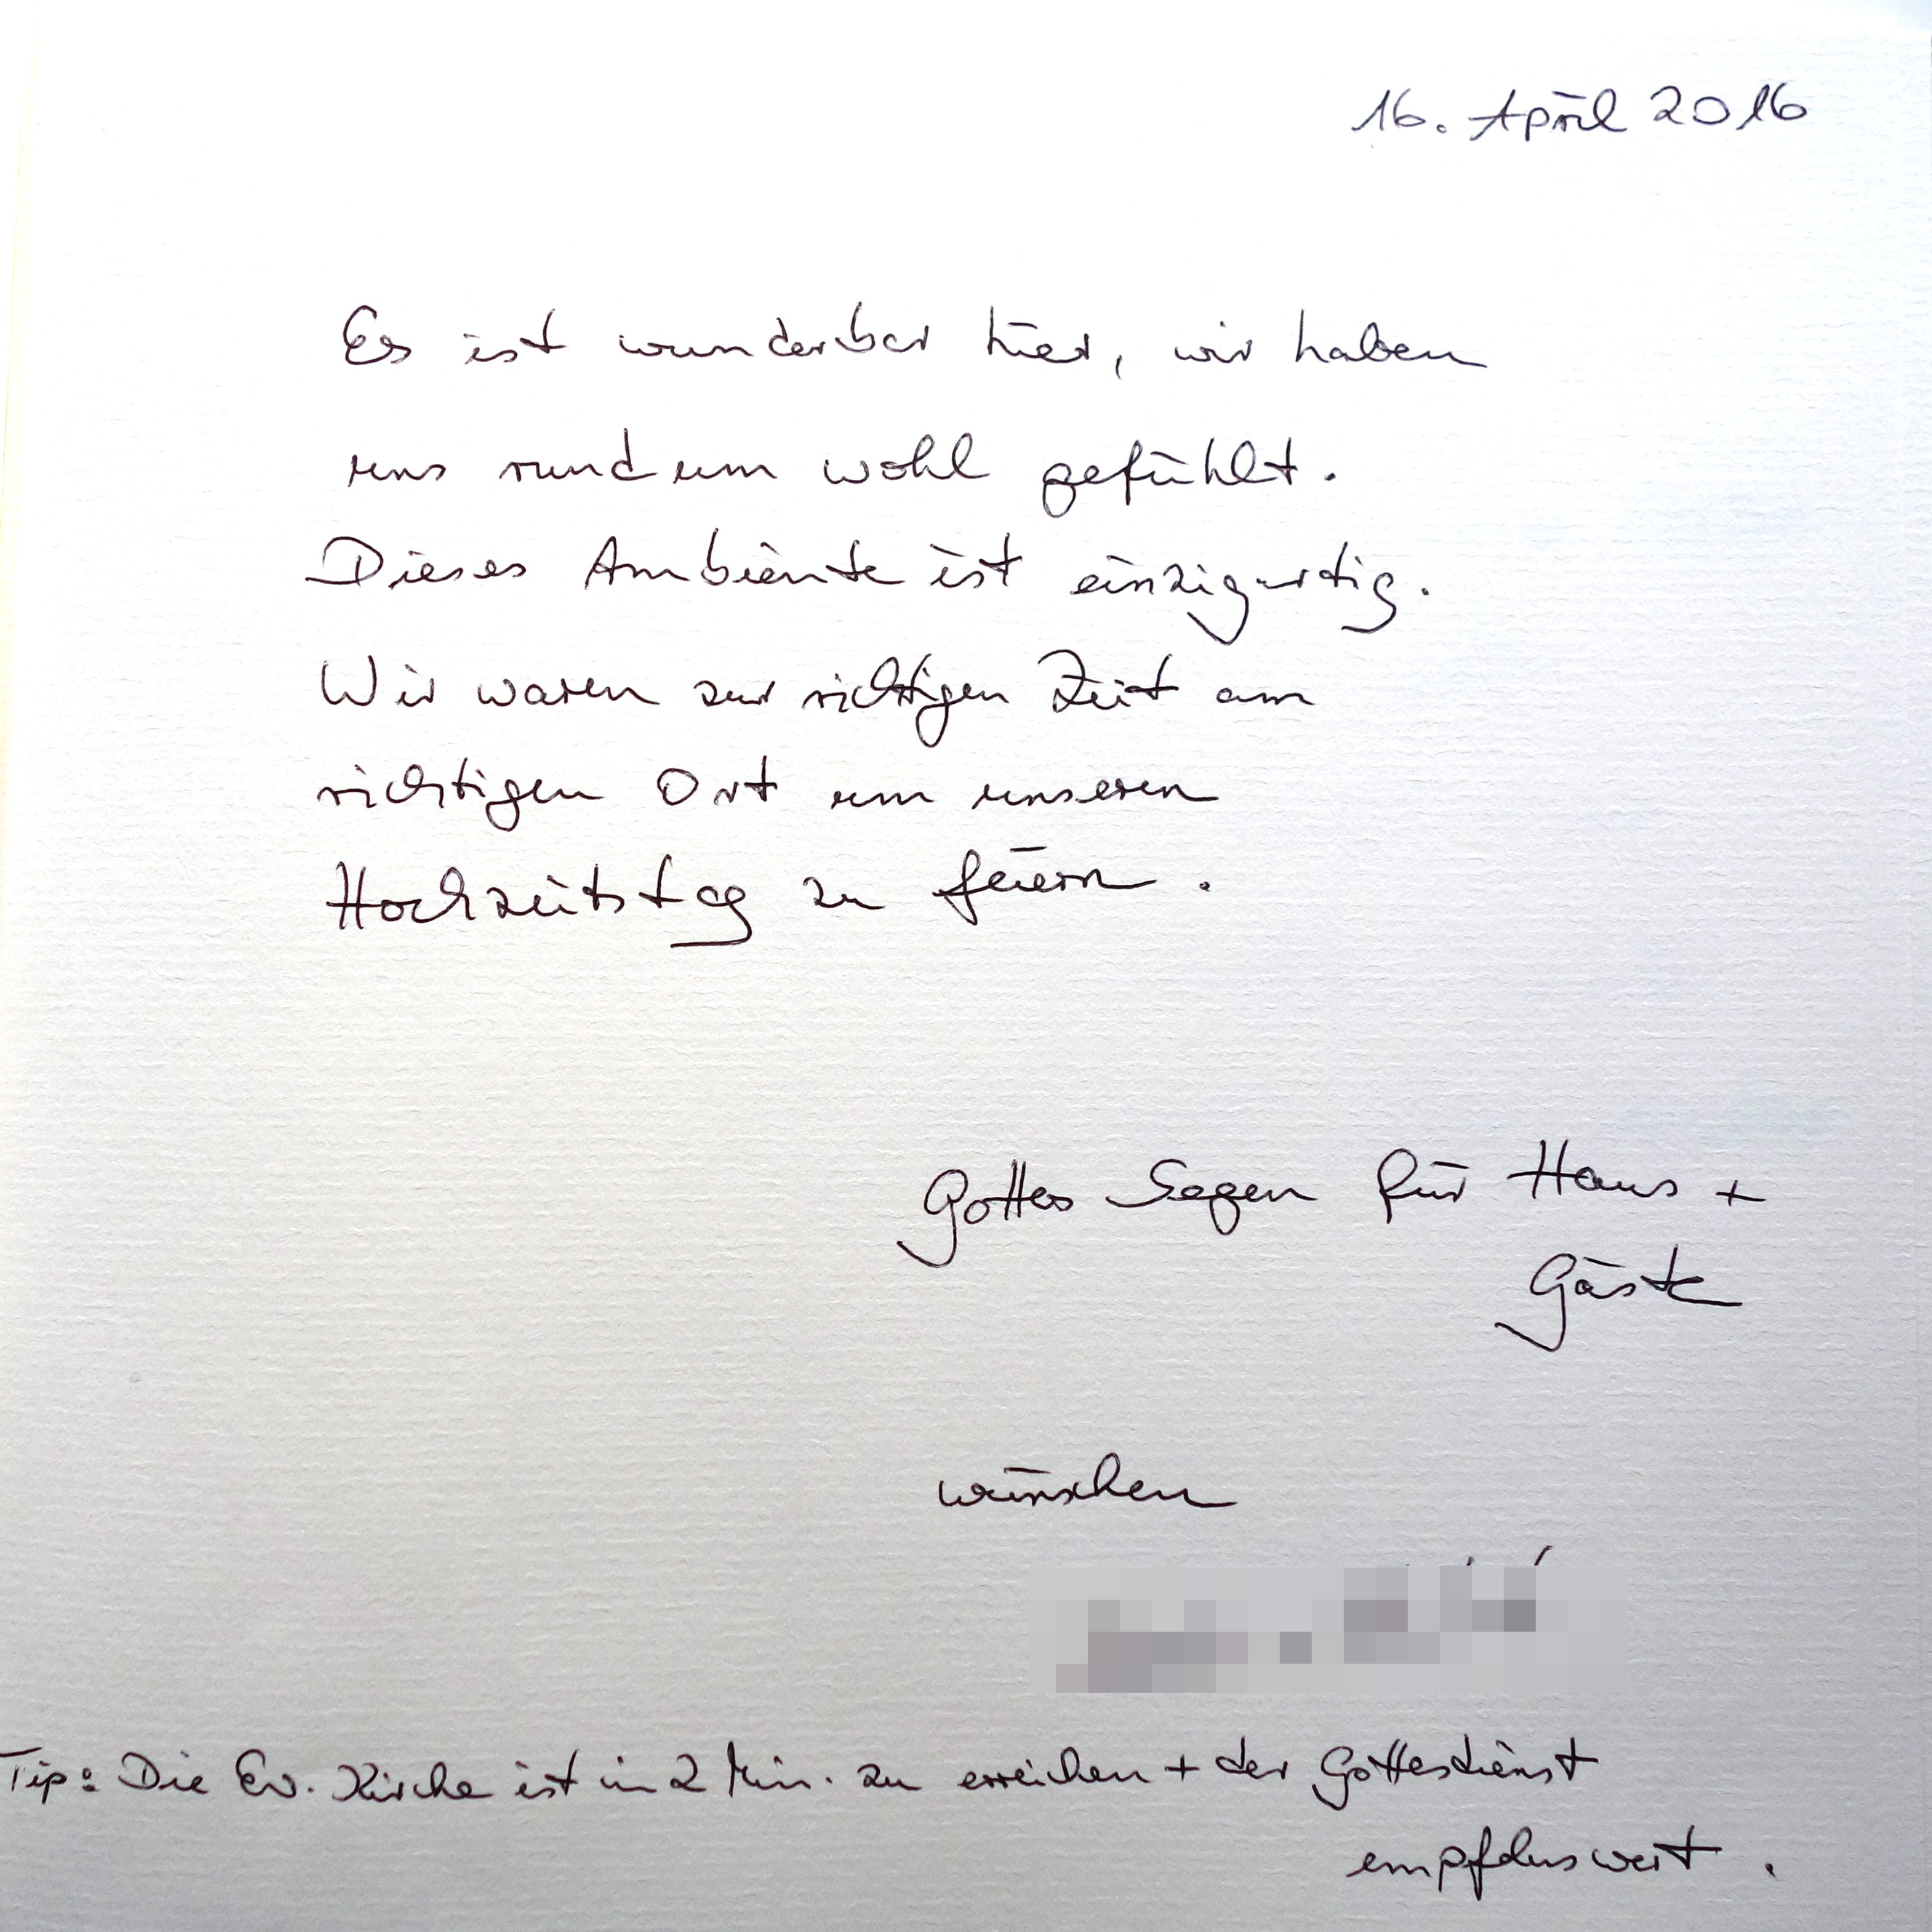 16. April 2016
Es ist wunderbar hier, wir haben
uns rundum wohl gefühlt.
Dieses Ambiente ist einzigartig.
Wir waren zur richtigen Zeit am
richtigen Ort um unseren
Hochzeitstag zu feiern.
Gottes Segen für Haus +
Gäste
wünschen
Tip: Die Ev. Kirche ist in 2 Min. zu erreichen + der Gottesdienst
empfehlenswert.